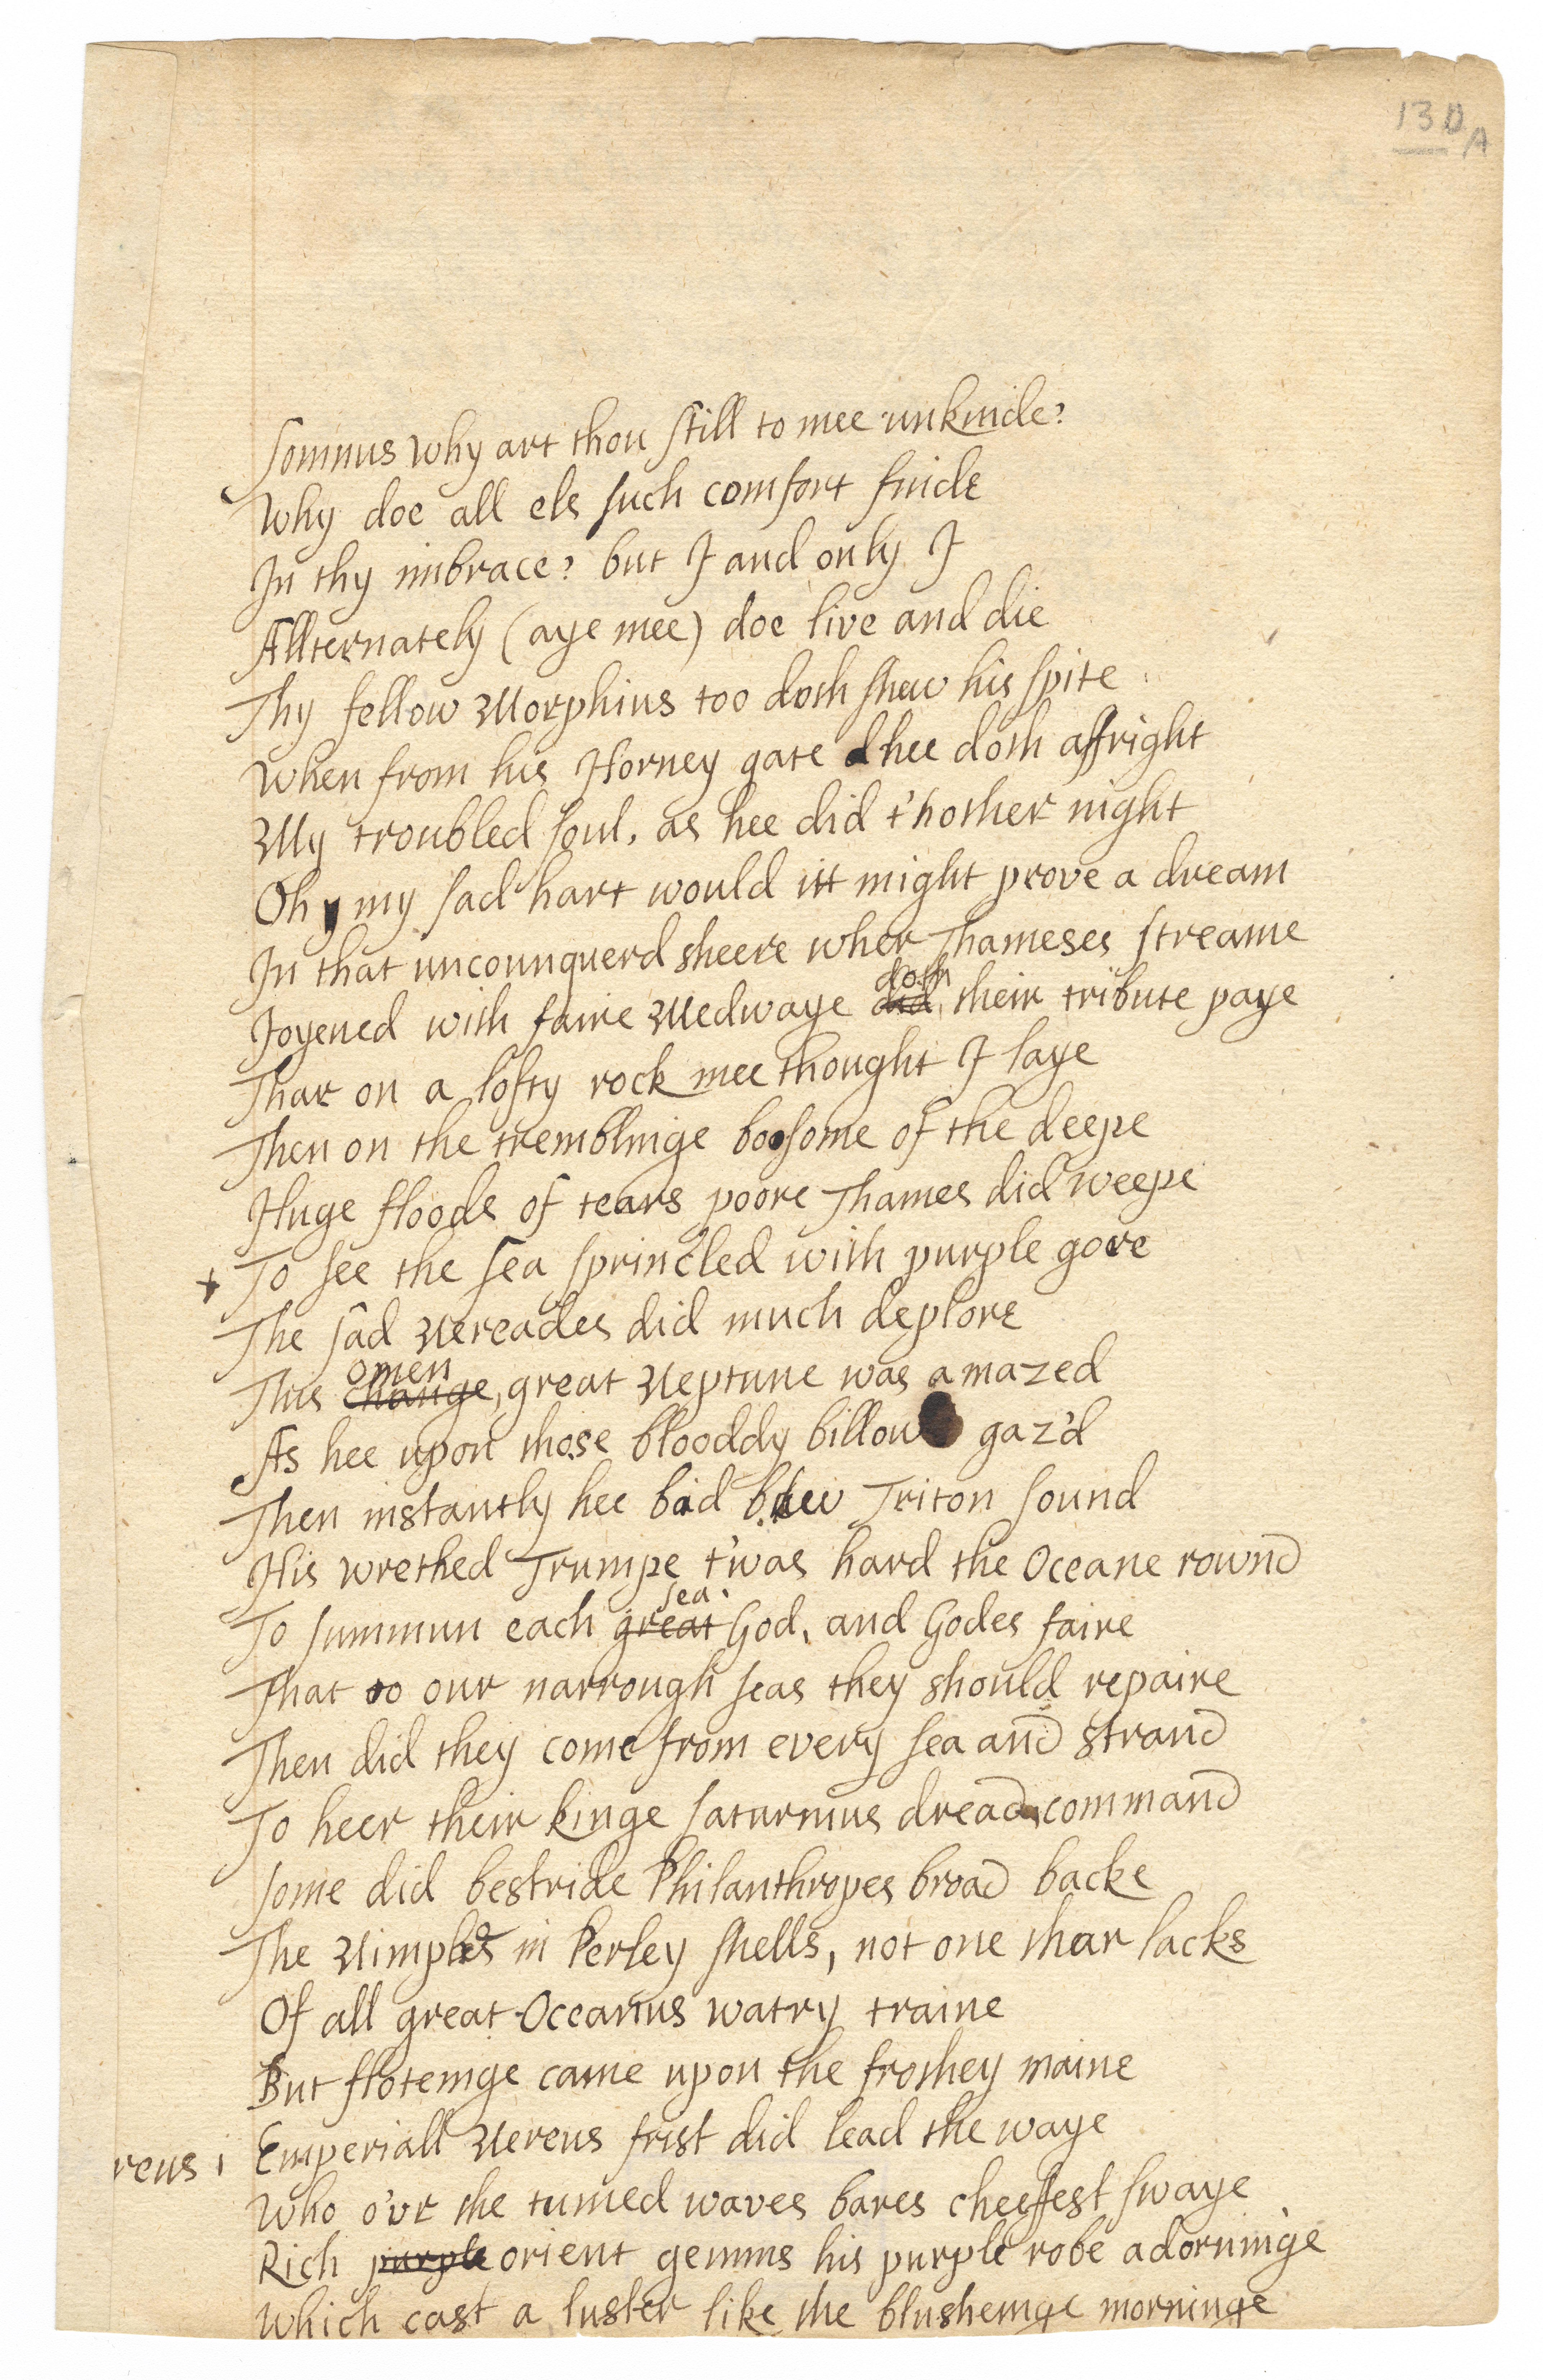 130A
Somnus why art thou still to mee unkinde?
Why doe all els such comfort finde
In thy imbrace? but I and only I
Allternately (aye mee) doe live and die
Thy fellow Morphius too doth shew his spite
When from his Horney gate hee doth affright
My troubled soul, as hee did t'hother night
Oh my sad hart would itt might prove a dream
In that uncounquerd sheere wher Thameses streame
Joyened with faire Medwaye did doth their tribute paye
Thar on a lofty rock mee thought I laye
Then on the tremblinge boosome of the deepe
Huge floods of tears poore Thames did weepe
+ To see the sea sprincled with purple gore
The sad Nereades did much deplore
This change omen, great Neptune was amazed
As hee upon those blooddy billows gaz'd
Then instantly hee bid blew Triton sound
His wrethed Trumpe t'was hard the Oceane rownd
To summun each great sea God, and Godes faire
That to our narrough seas they should repaire
Then did they come from every sea and strand
To heer their kinge saturnius dread command
some did bestride Philanthropes broad backe
The Nimphes in Perley shells, not one thar lacks
Of all great Oceanus watry traine
But floteinge came upon the frothey maine
reus 1 Emperiall Nereus frist did lead the waye
Who o'vr the tumed waves bares cheeffest swaye
Rich purple orient gemms his purple robe adorninge
Which cast a luster like the blusheinge morninge